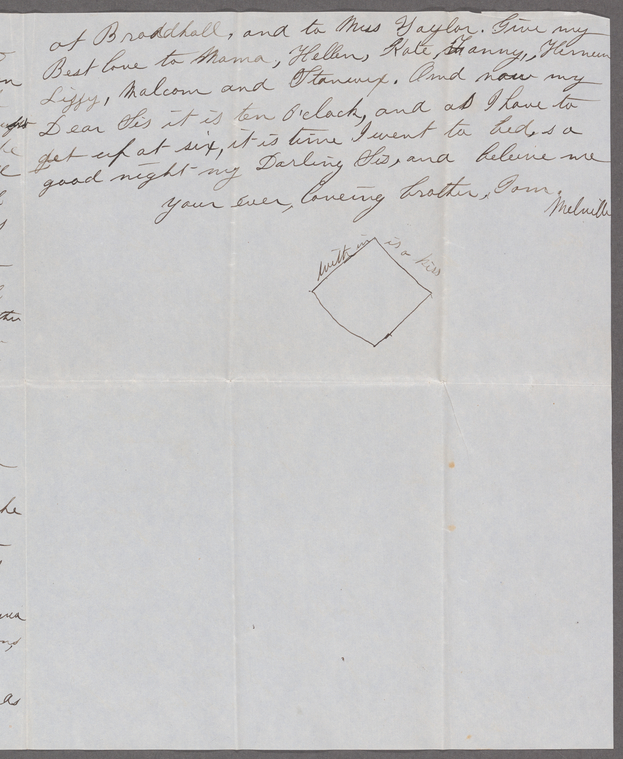 at Broadhall, and to Miss Taylor. Give my
Best love to Mama, Hellen, Kate, Fanny, Herman
Lizzy, Malcom and Stanwix. And now my
Dear Sis it is ten O'clock, and as I have to
get up at six, it is time I went to bed, so a
good night my Darling Sis, and beleive me
your ever, loveing brother, Tom.
Melville
with in is a kiss
the
as